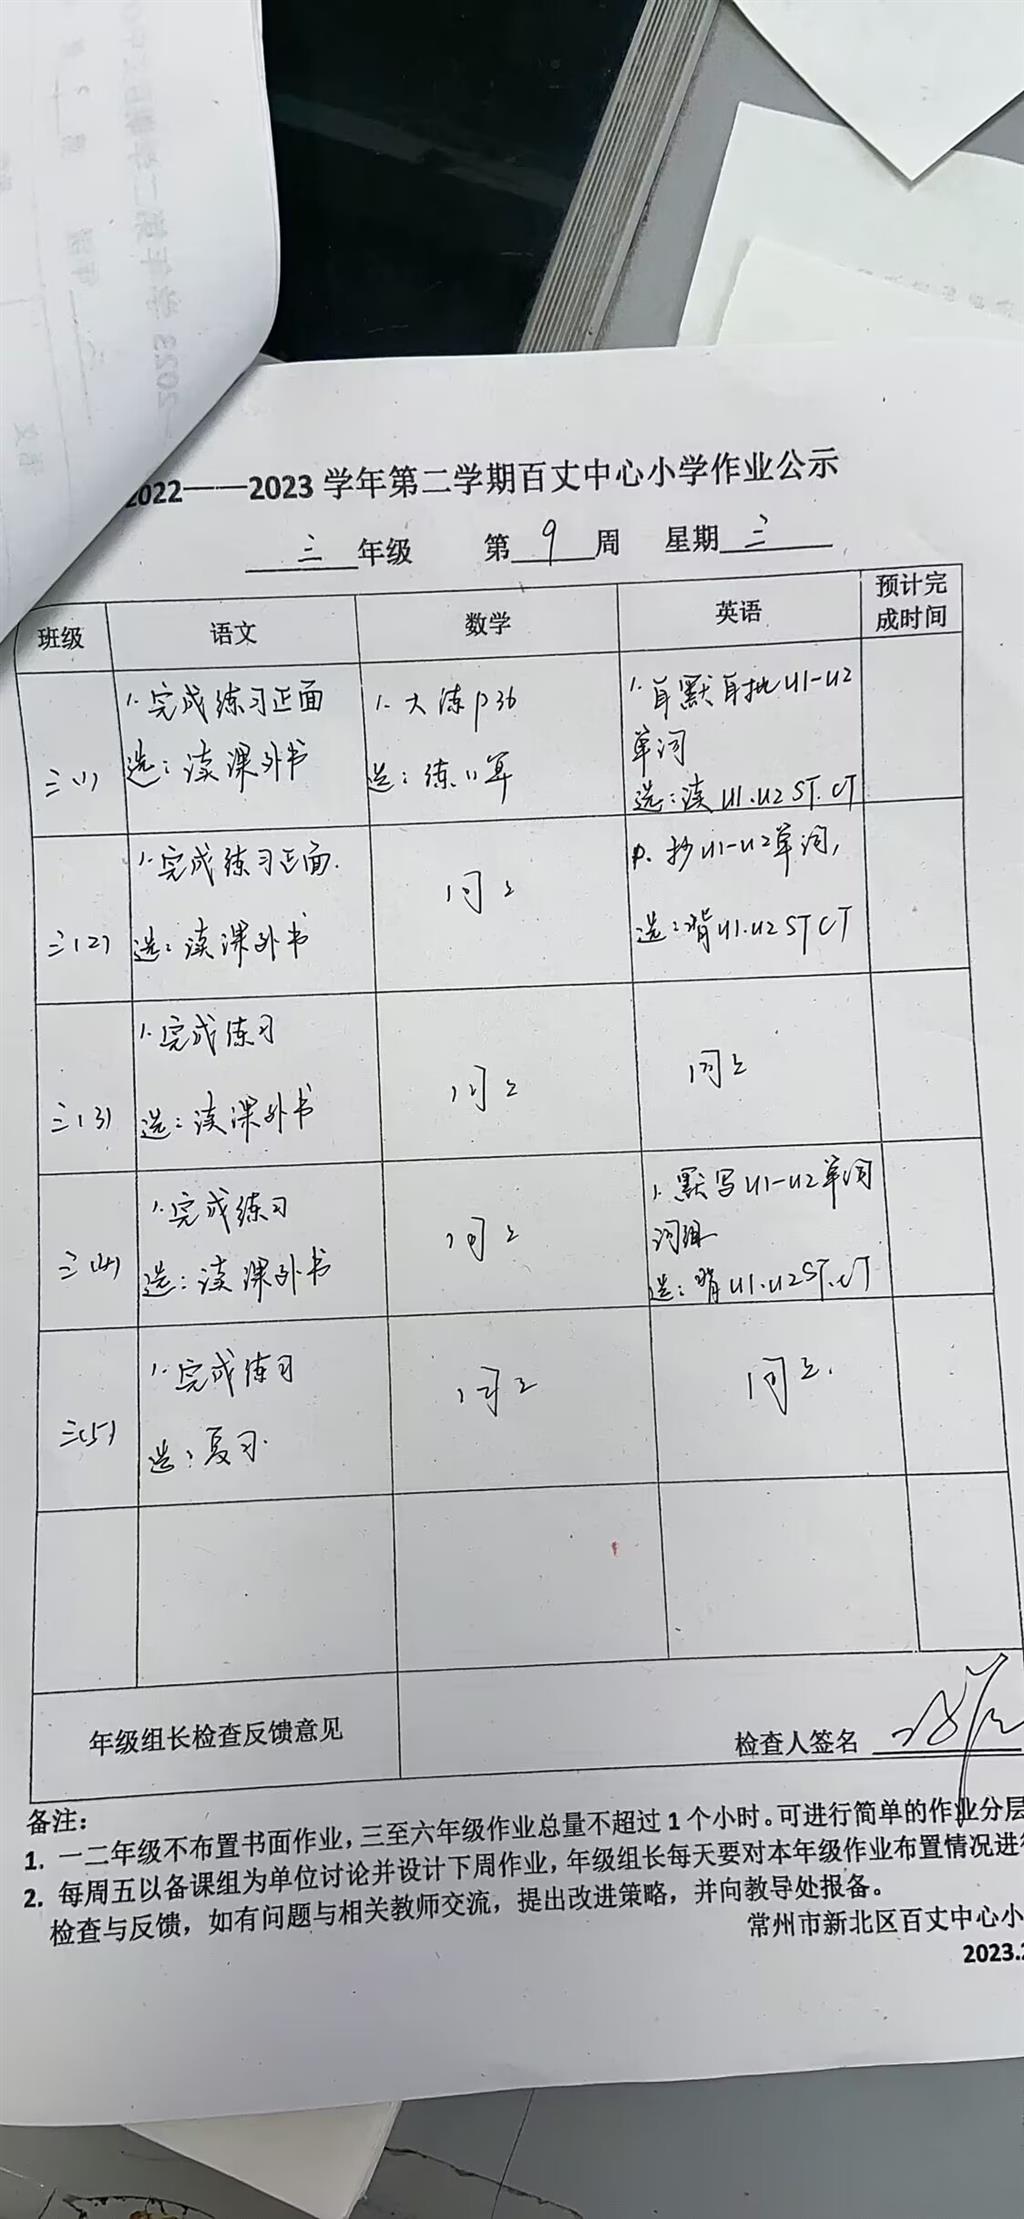 2022——2023 学年第二学期百丈中心小学作业公示
三 年级 第 9 周 星期 三
班级 语文 数学 英语 预计完
成时间
三(1)
1. 完成练习正面
选：读课外书
1. 大练P36
选：练口算
1. 自默自批U1-U2
单词
选：读U1.U2 ST.CT
三(2)
1. 完成练习正面.
选：读课外书
同上
抄U1-U2单词,
选：背U1.U2 ST CT
三(3)
1. 完成练习
选：读课外书
同上
同上
三(4)
1. 完成练习
选：读课外书
同上
1. 默写U1-U2单词
词组
选：背U1.U2 ST.CT
三(5)
1. 完成练习
选：复习.
同上
同上.
年级组长检查反馈意见
检查人签名
备注：
1. 一二年级不布置书面作业，三至六年级作业总量不超过 1 个小时。可进行简单的作业分层
2. 每周五以备课组为单位讨论并设计下周作业，年级组长每天要对本年级作业布置情况进行
检查与反馈，如有问题与相关教师交流，提出改进策略，并向教导处报备。
常州市新北区百丈中心小
2023.